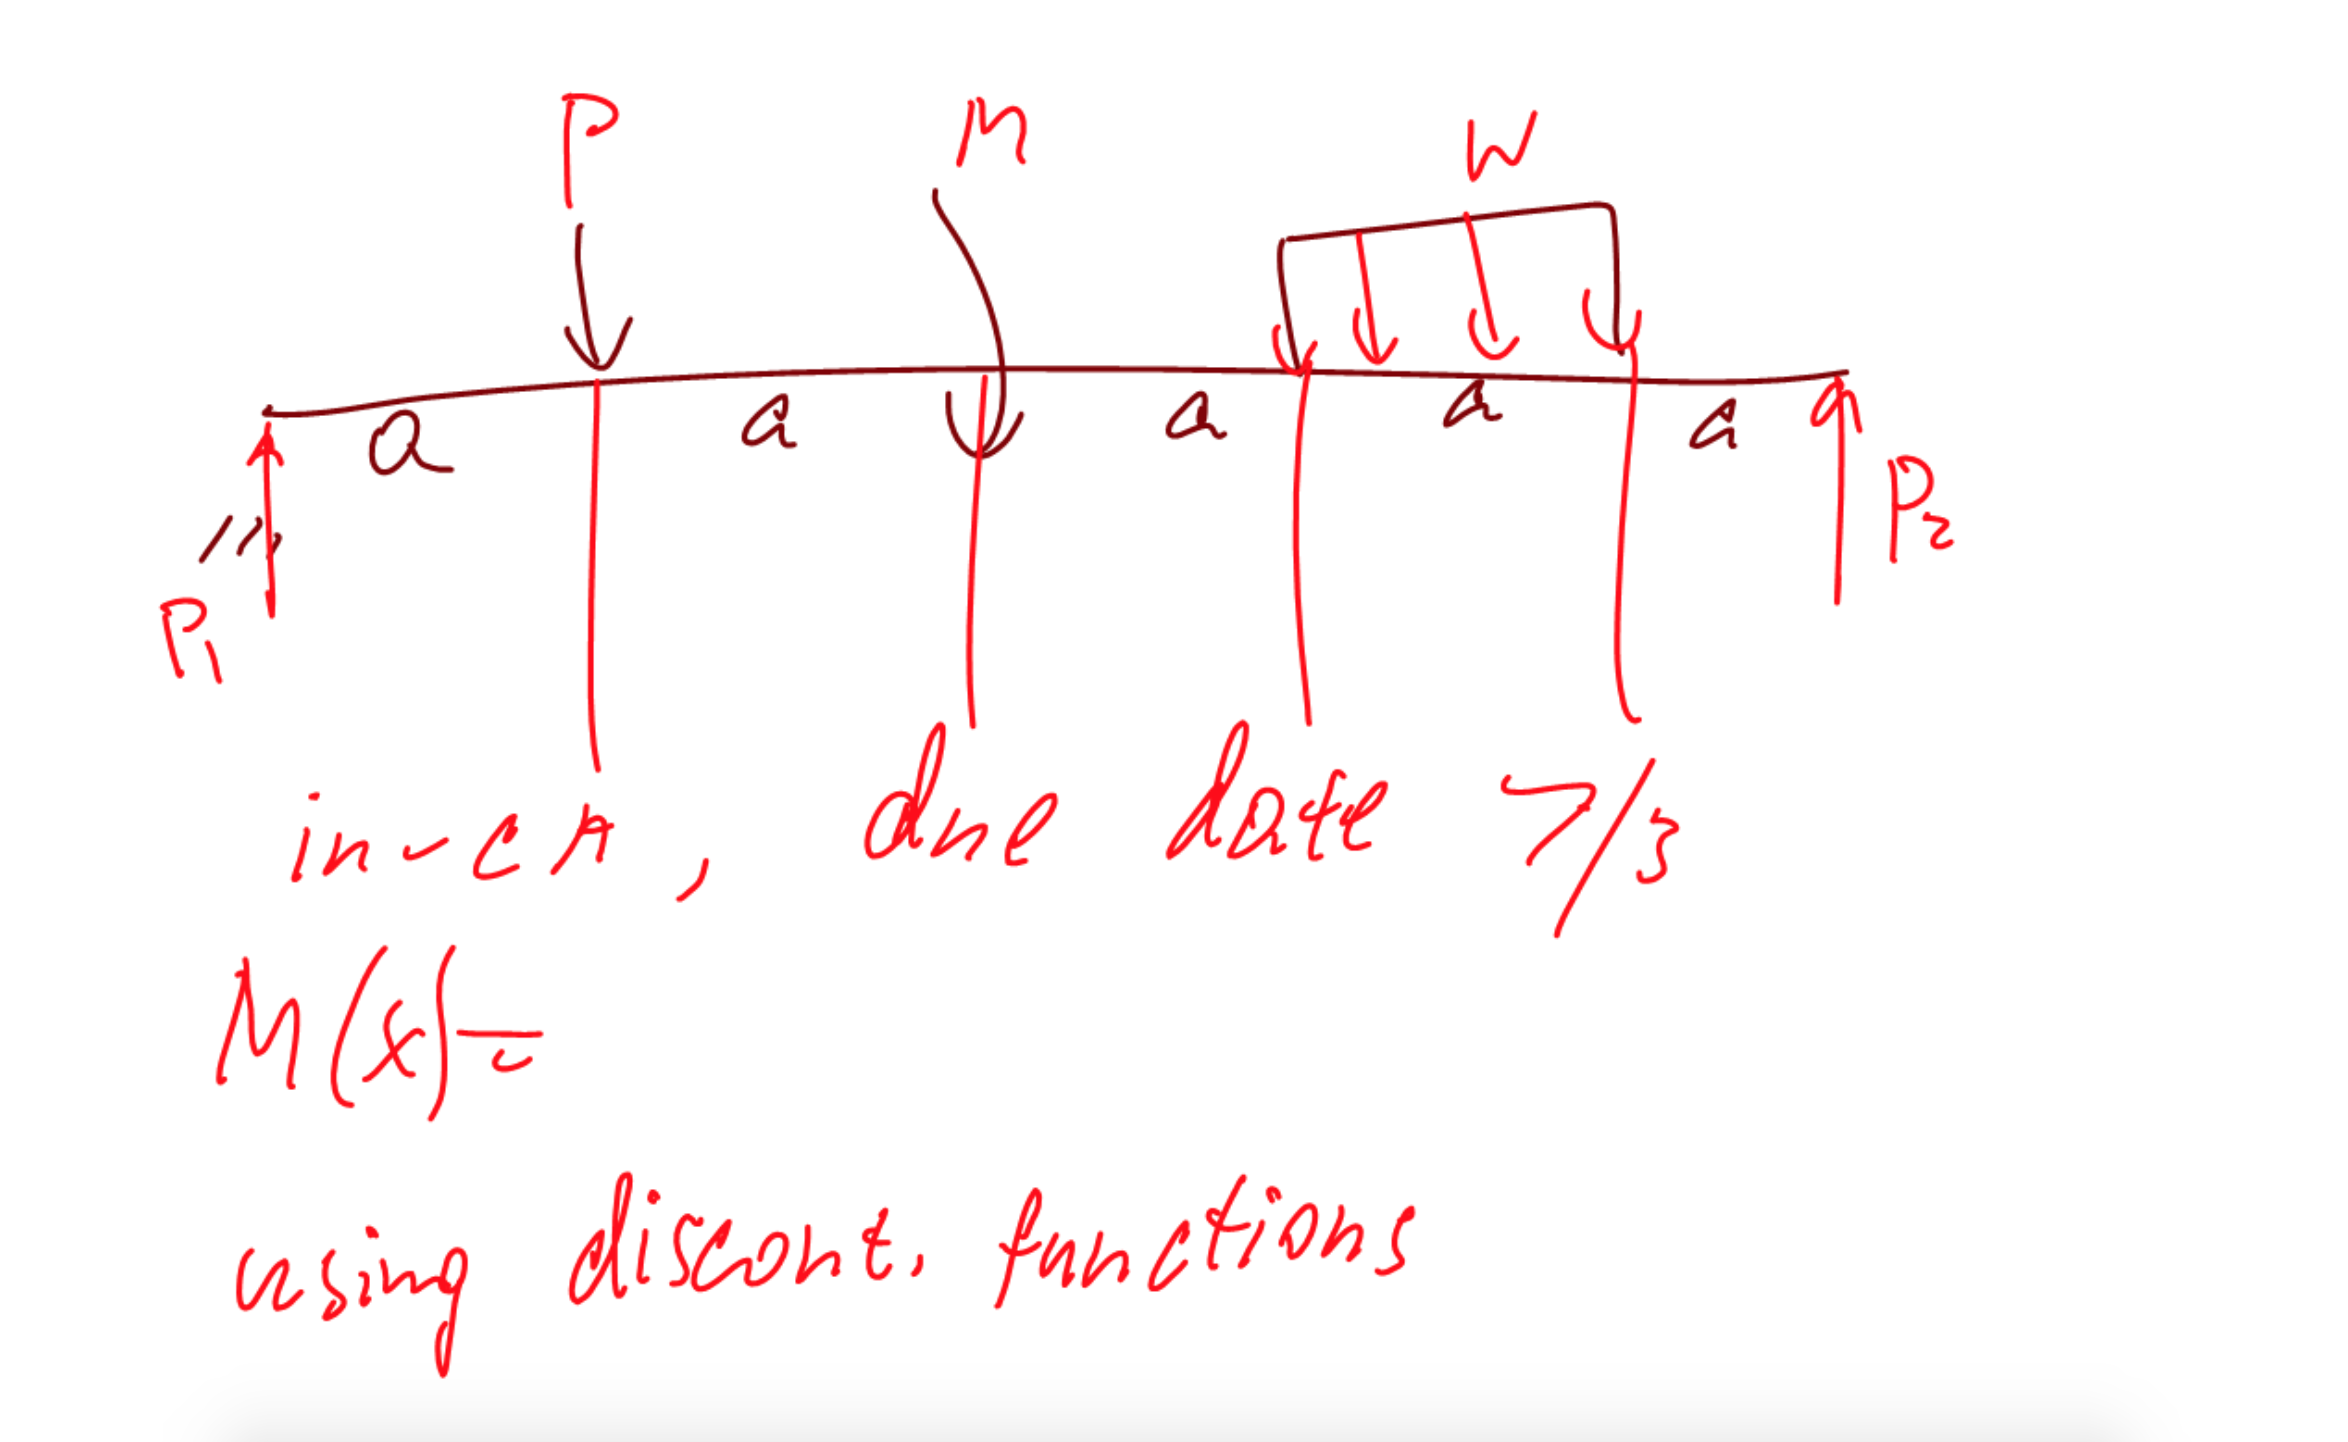 P M W
a a a a a
P₁ P₂
in-cA, due date 7/3
M(x)=
using discont. functions